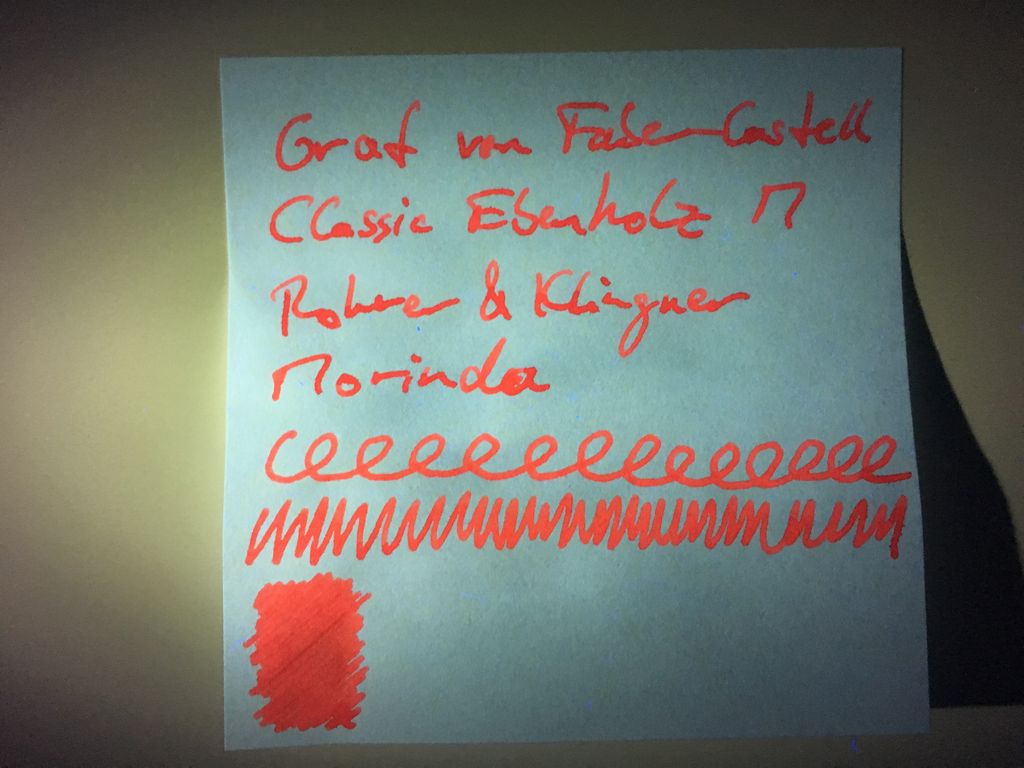 Graf von Faber-Castell
Classic Ebenholz M
Rohrer & Klingner
Morinda